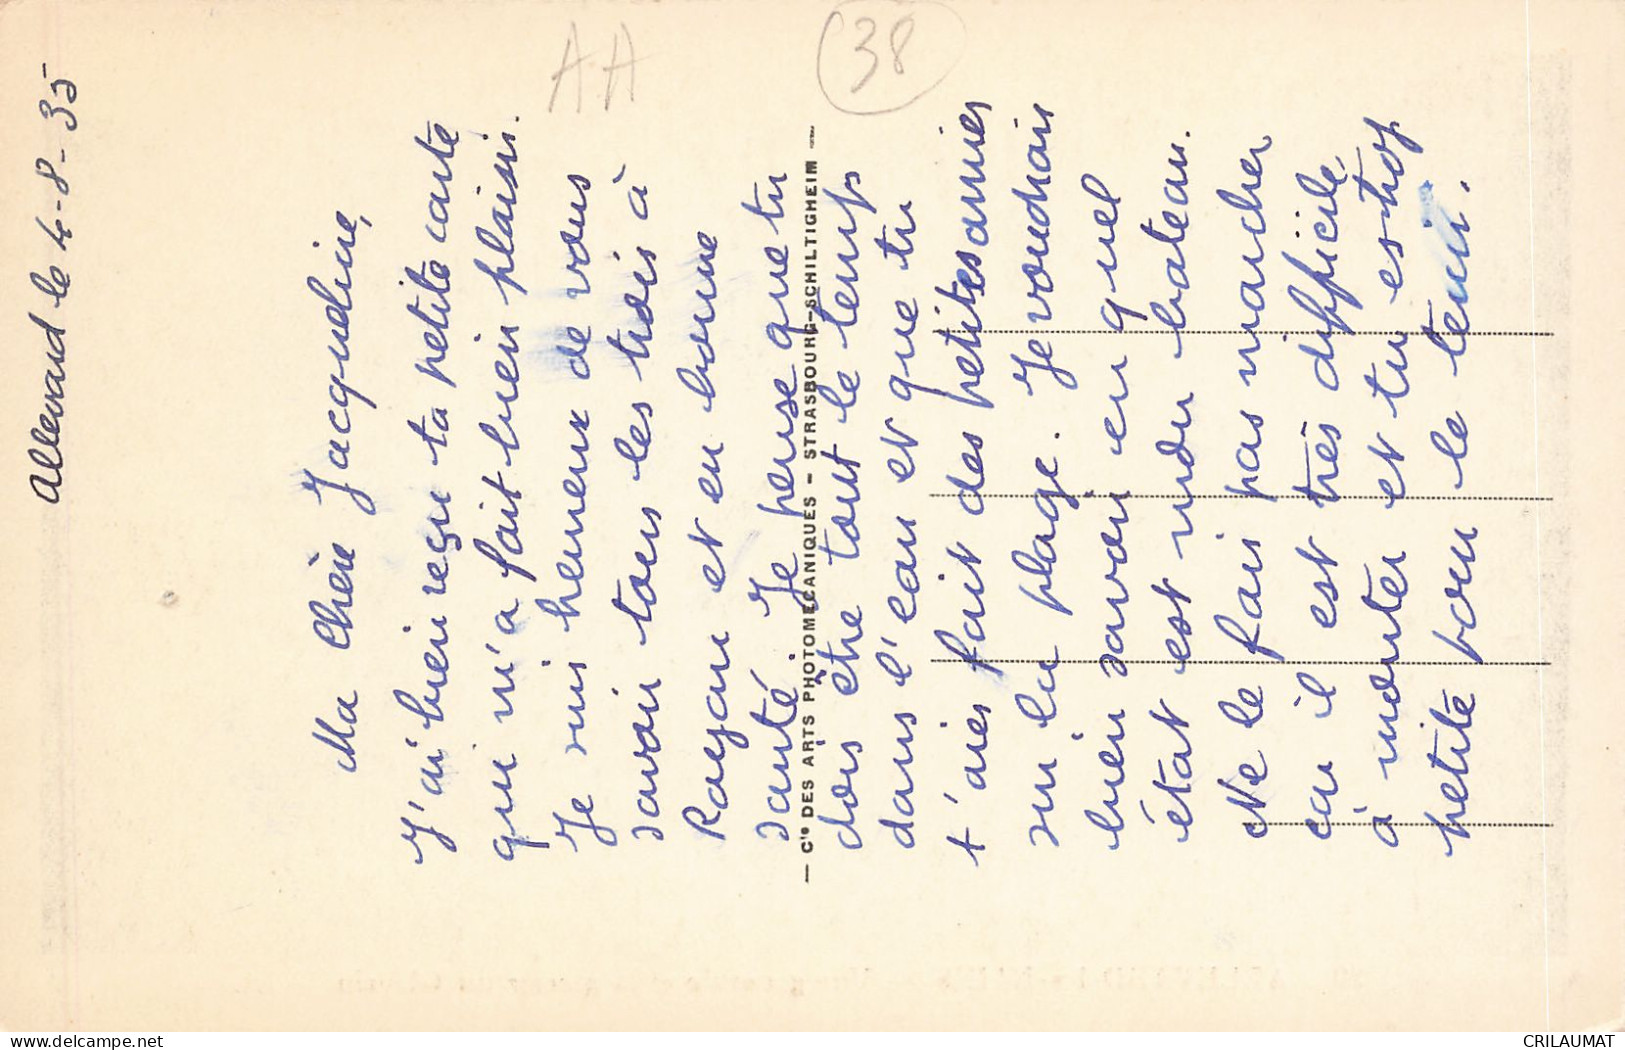 Allevard le 4-8-35
Ma Chère Jacqueline,
J'ai bien reçu ta petite carte
qui m'a fait bien plaisir.
Je suis heureux de vous
savoir tous les trois à
Royan et en bonne
santé. Je pense que tu
dois être tout le temps
dans l'eau et que tu
t'aies fait des petites amies
sur la plage. Je voudrais
bien savoir en quel
état est mon bateau.
Ne le fais pas marcher
car il est très difficile
à monter et tu es trop
petite pour le tenir.
AA
38
— Cie DES ARTS PHOTOMECANIQUES - STRASBOURG-SCHILTIGHEIM —
delcampe.net
CRILAUMAT